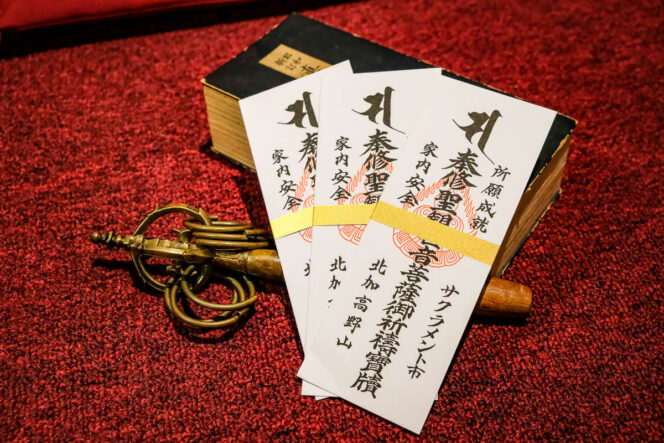 所願成就
サクラメント市
奉修聖觀音菩薩御祈禱寶牘
家内安全
北加高野山
奉修聖
家内安全
北加
家内安全
北